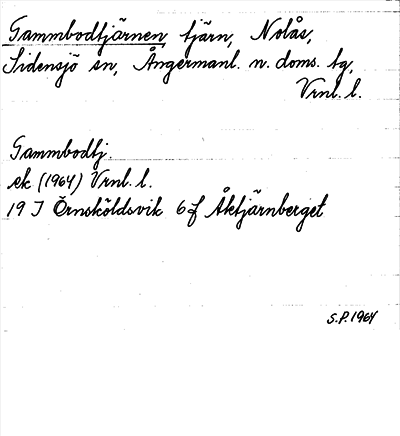 Gammbodtjärnen, tjärn, Nolås,
Sidensjö sn, Ångermanl. n. doms. tg,
Vrnl. l.
Gammbodtj.
ek (1964) Vrnl. l.
19 J Örnsköldsvik 6 f Åktjärnberget
S.P. 1964